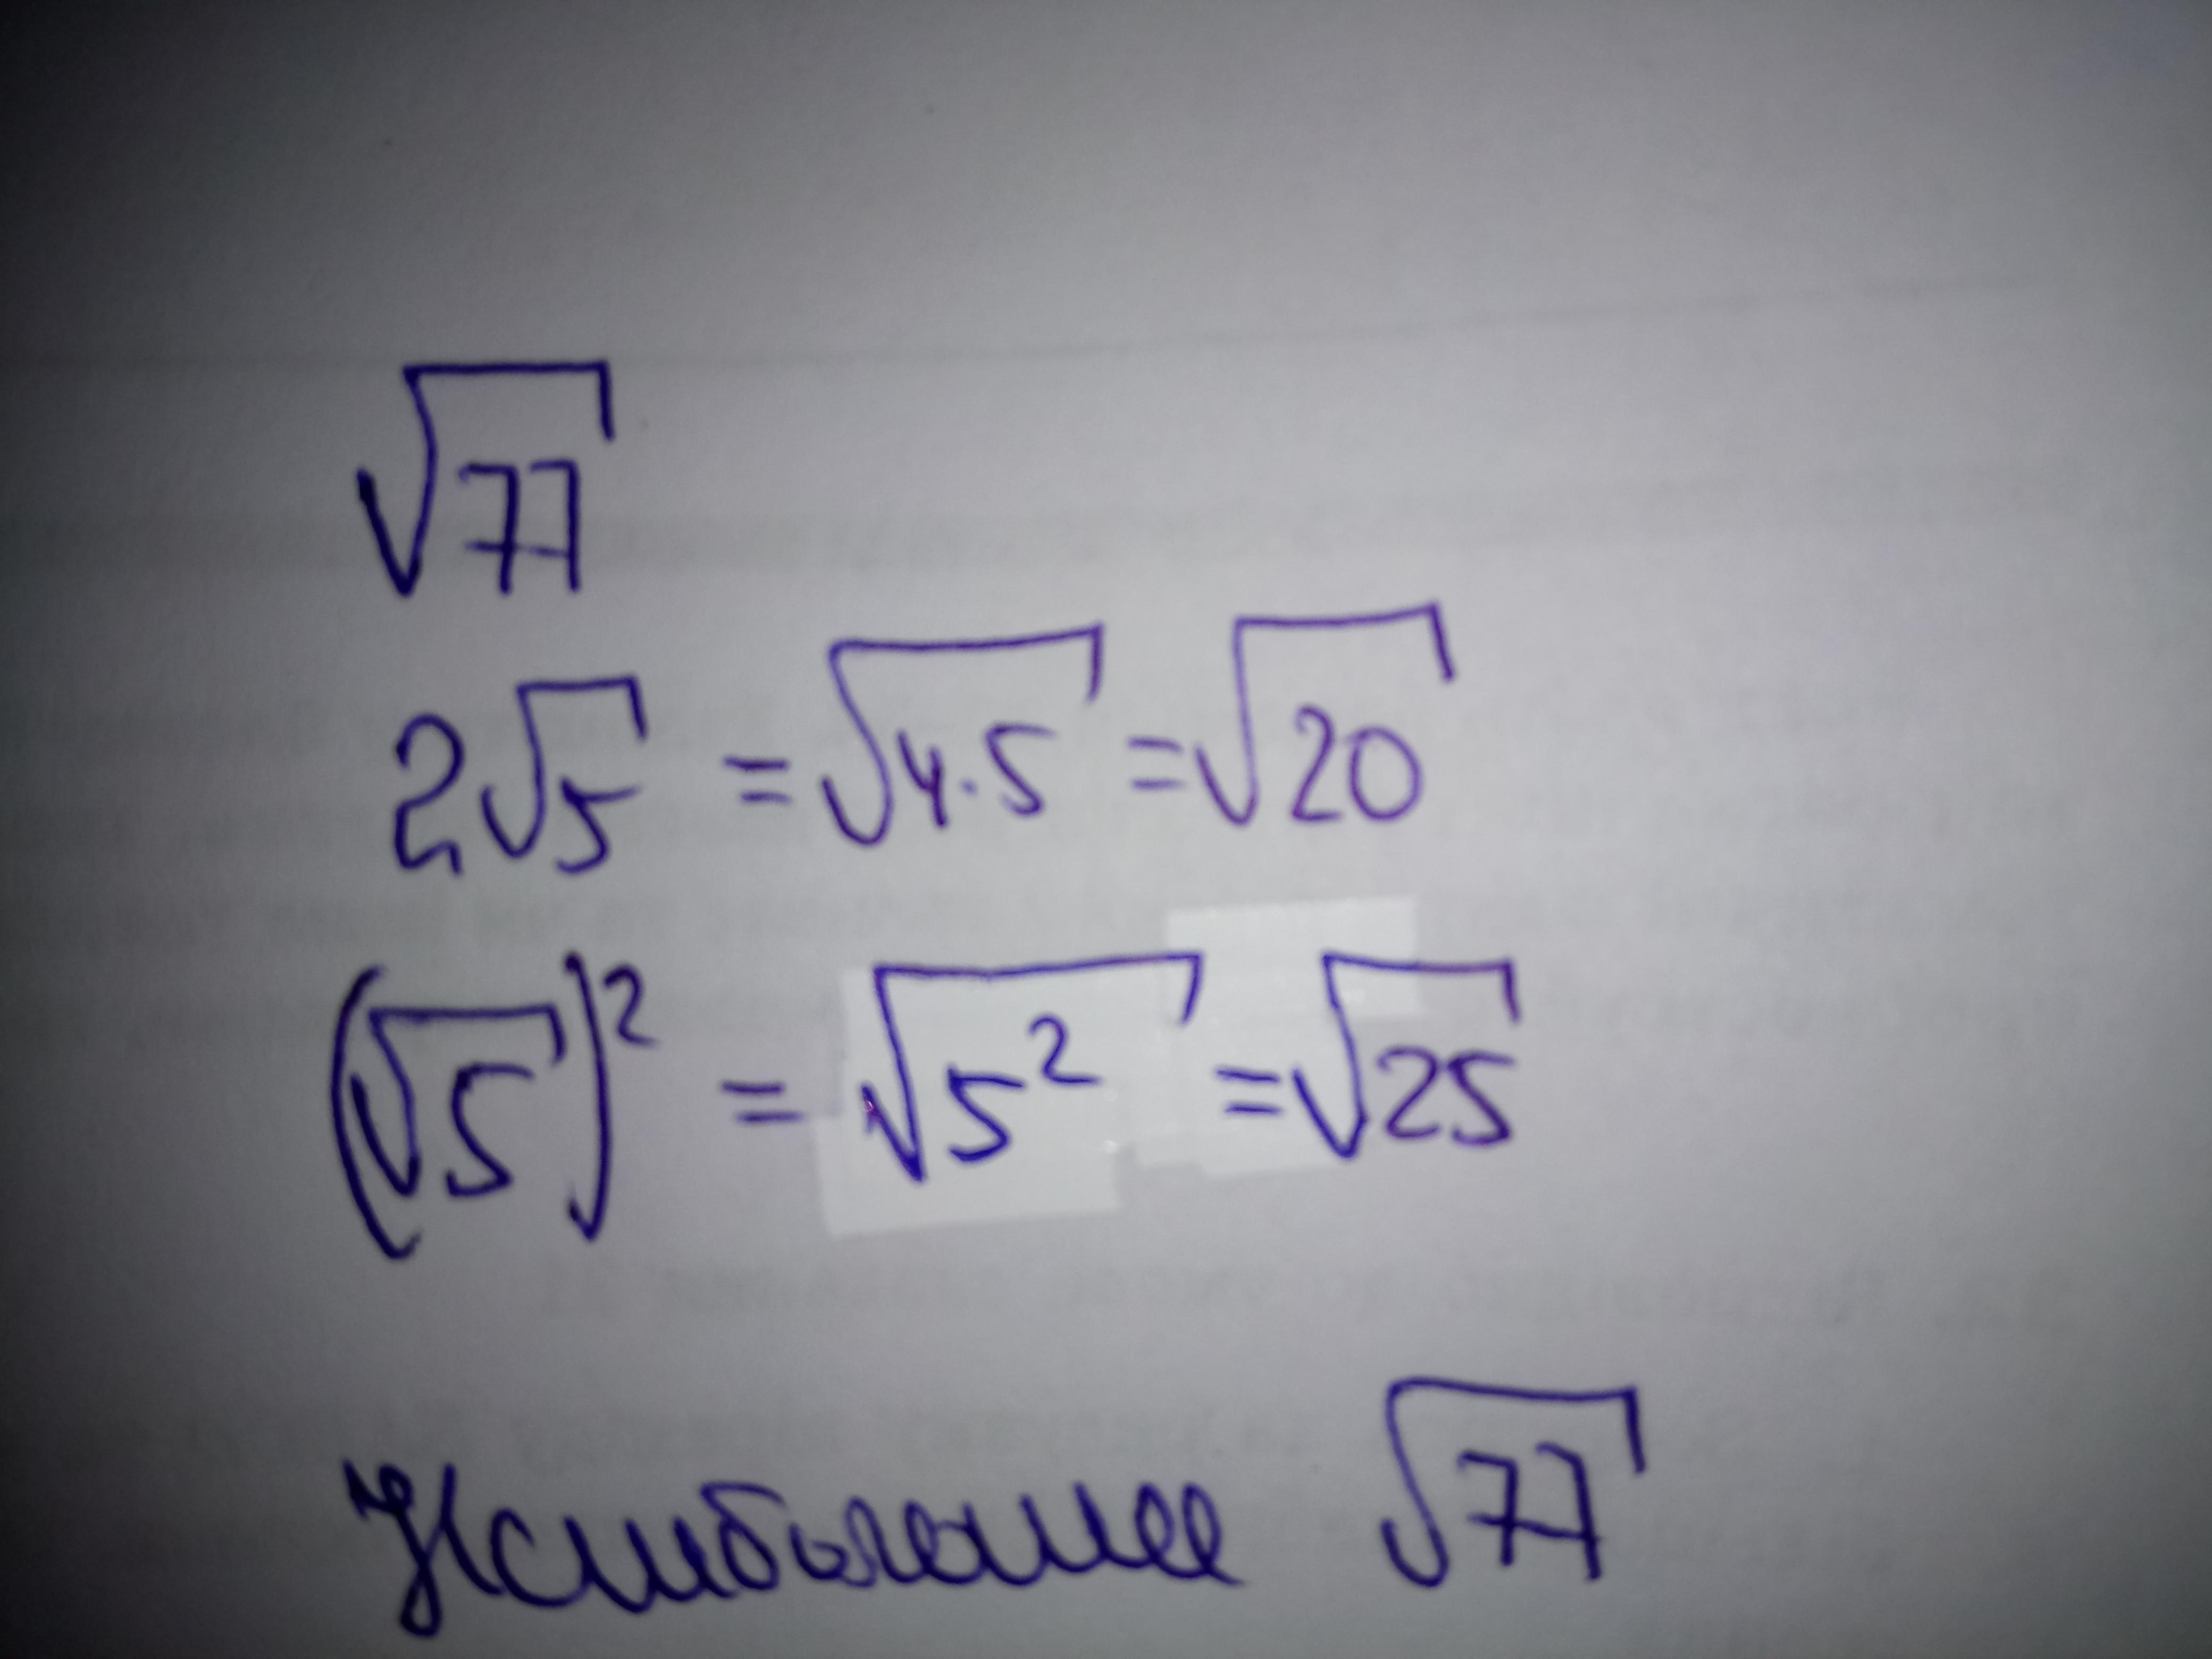 √77
2√5 = √4·5 = √20
(√5)² = √5² = √25
Наибольшее √77